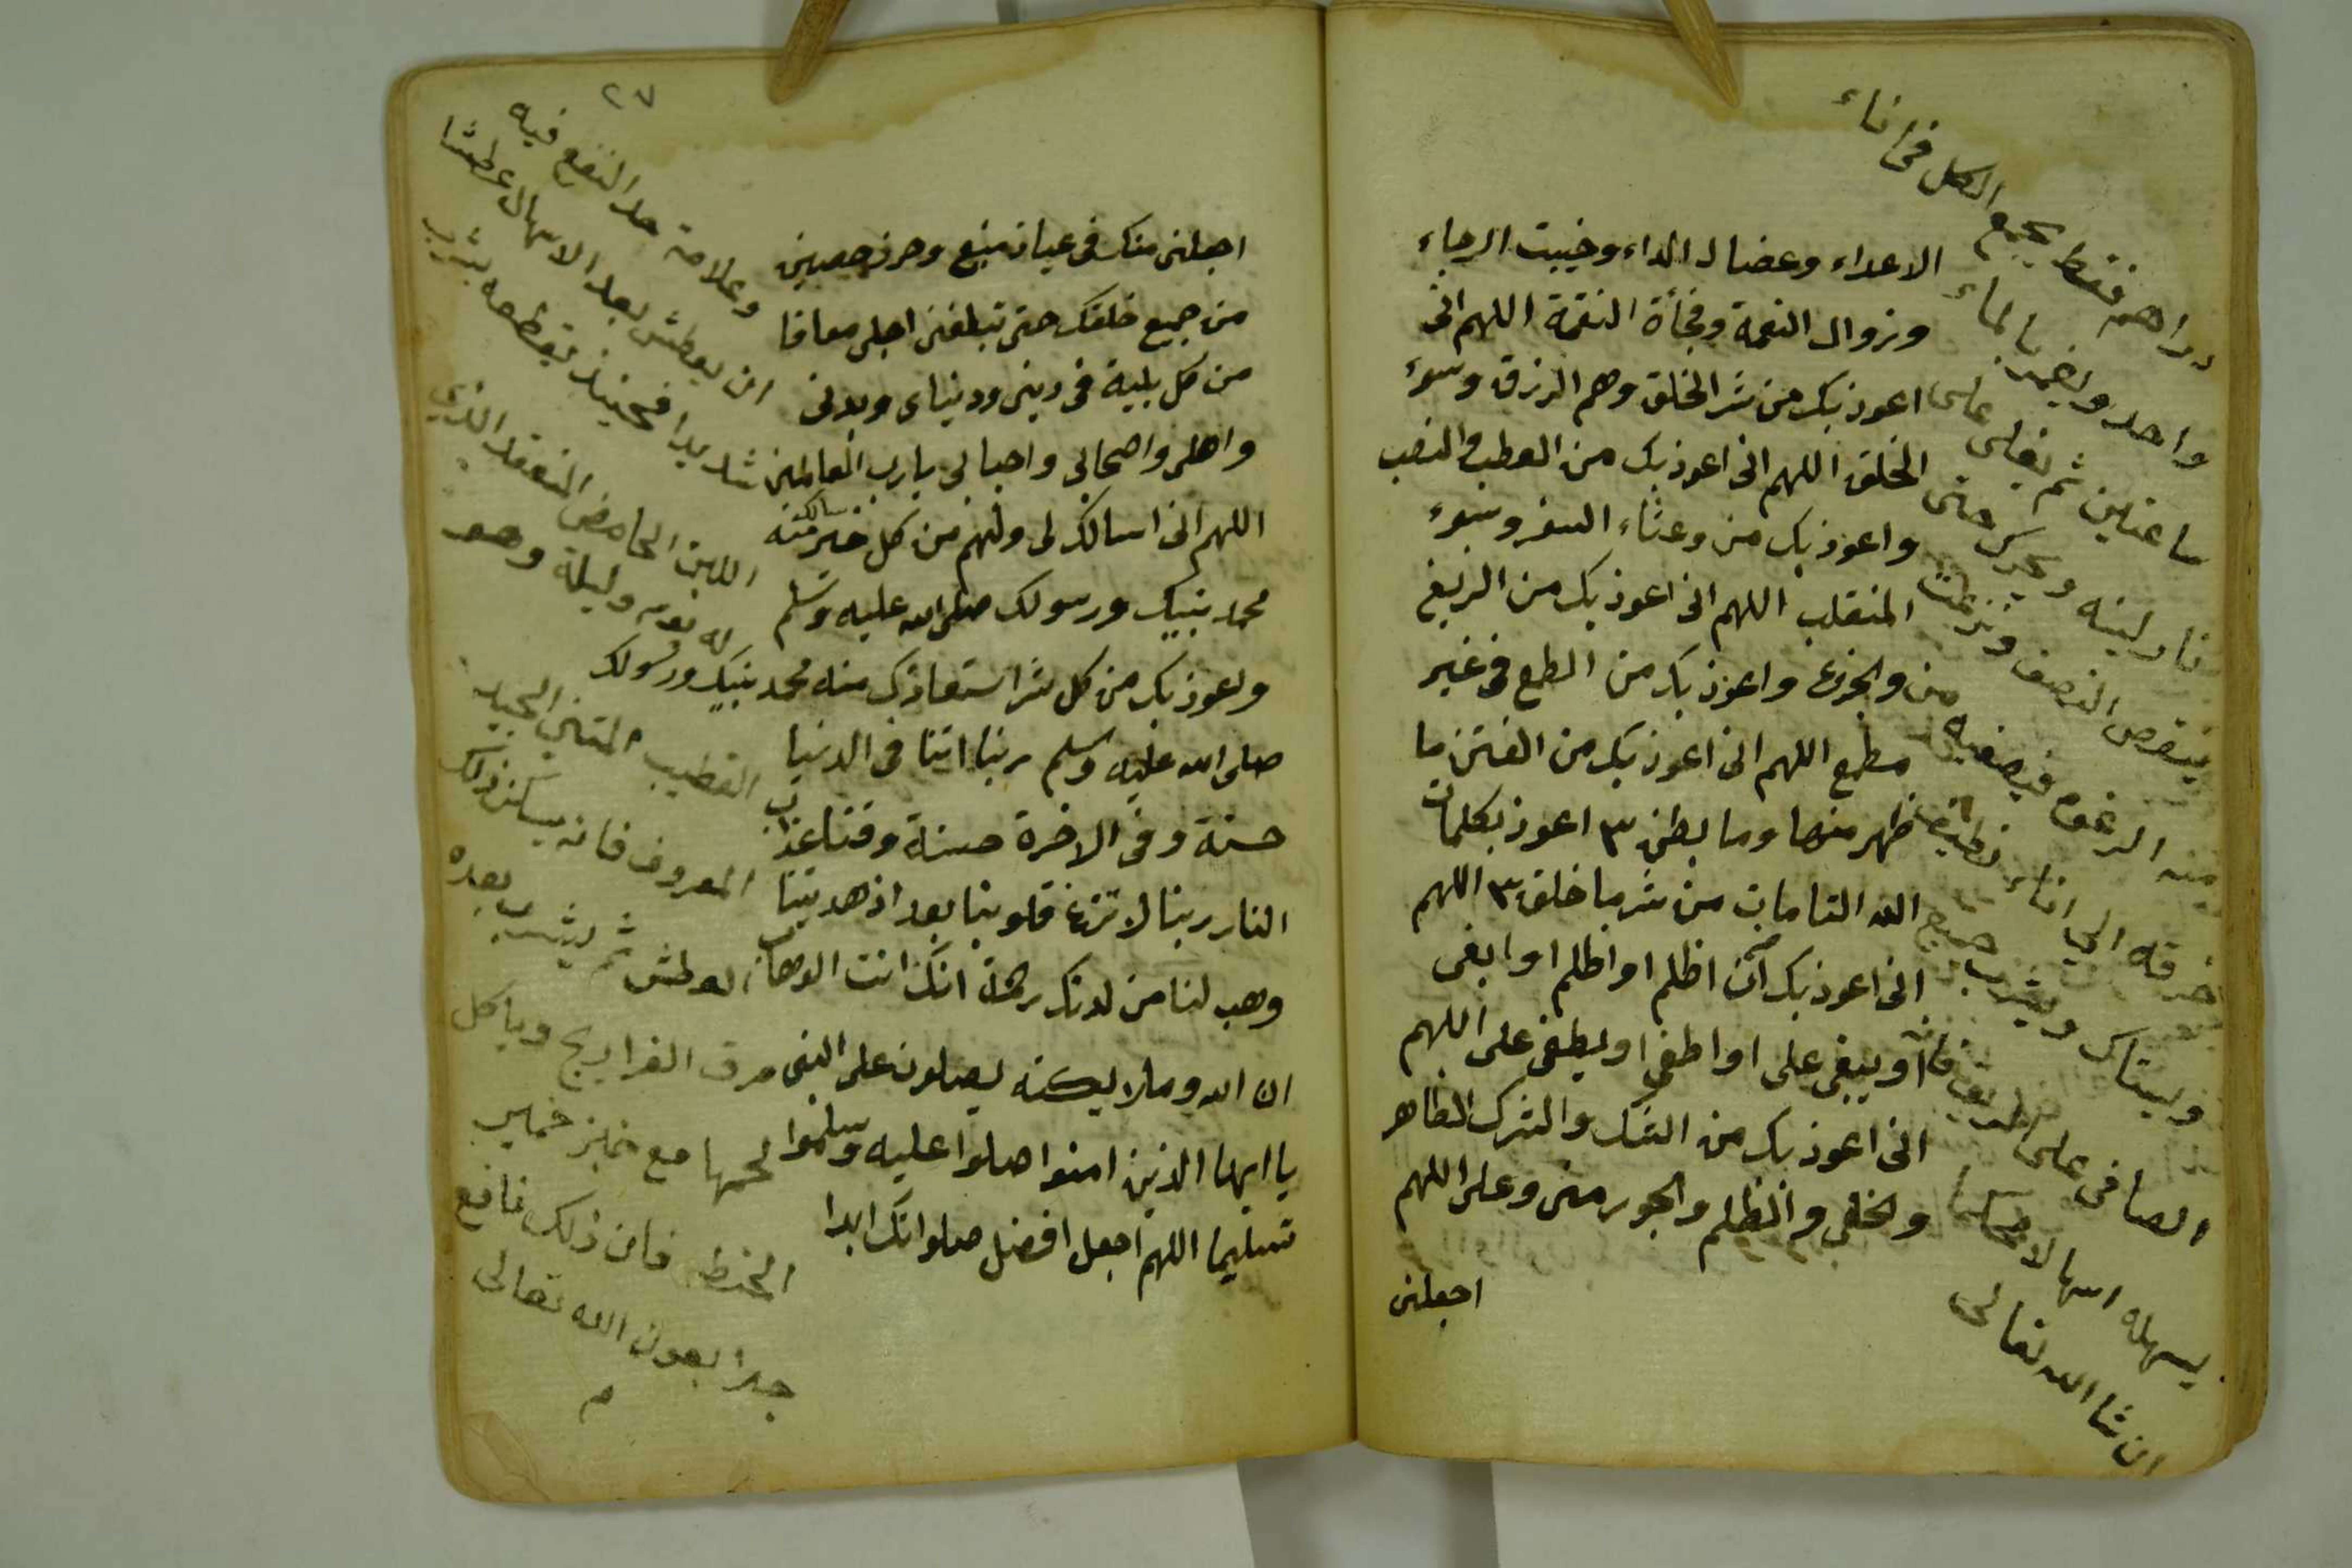 الاعداء وعضال الداء وخيبت الرجاء
وزوال النعمة وفجأة النقمة اللهم انى
اعوذ بك من شر الخلق وهم الرزق وسوء
الخلق اللهم انى اعوذ بك من العطب والنصب
واعوذ بك من وعثاء السفر وسوء
المنقلب اللهم انى اعوذ بك من الزيغ
والجزع واعوذ بك من الطمع فى غير
مطمع اللهم انى اعوذ بك من الفتن ما
ظهر منها وما بطن ٣ اعوذ بكلمات
الله التامات من شر ما خلق ٣ اللهم
انى اعوذ بك ان اظلم او اظلم او ابغى
او يبغى على او اطغى او يطغى على اللهم
انى اعوذ بك من الشك والشرك الظاهر
والخفى والظلم والجور منى وعلى اللهم
اجعلنى
دراهم فقط يجمع الكل فى اناء
واحد ويغمر بالماء
ساعتين ثم يغلى على
نار لينه ويحرك حتى
ينقص النصف وتنزع
منه الرغوه فيصفيه من
خرقه الى اناء نظيف
ويستاك ويشرب جميع
الصافى على الريق فانه
يسهله اسهالا
ان شا الله تعالى
٢٧
اجعلنى منك فى عياذ منيع وحرز حصين
من جميع خلقك حتى تبلغنى اجلى معافا
من كل بلية فى دينى ودنياى وبدنى
واهلى واصحابى واحبابى يا رب العالمين
اللهم انى اسالك لى ولهم من كل خير سالك منه
محمد نبيك ورسولك صلى الله عليه وسلم
واعوذ بك من كل شر استعاذك منه محمد نبيك ورسولك
صلى الله عليه وسلم ربنا اتنا فى الدنيا
حسنة وفى الاخرة حسنة وقنا عذاب
النار ربنا لا تزغ قلوبنا بعد اذ هديتنا
وهب لنا من لدنك رحمة انك انت الوهاب
ان الله وملايكته يصلون على النبى
يا ايها الذين امنوا صلوا عليه وسلموا
تسليما اللهم اجعل افضل صلواتك ابدا
وعلامة حد النفع فيه
ان يعطش بعد الاسهال عطشا
شديدا فحينئذ يقطعه بشرب
اللبن الحامض المنعقد الذي
له يوم وليلة وهو
القطيب المتين الجيد
المعروف فانه يسكن ذلك
العطش ثم يشرب بعده
مرق الفراريج وياكل
لحمها مع خبز خمير
الحنطه فان ذلك نافع
جدا بعون الله تعالى
م